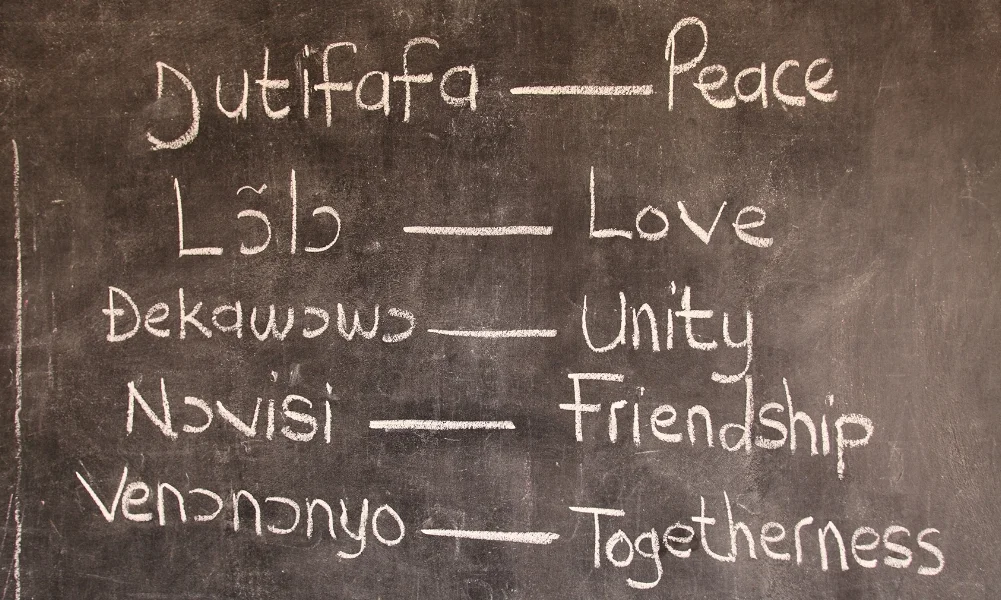 Ŋutifafa — Peace
Lɔ̃lɔ — Love
Ɖekawɔwɔ — Unity
Nɔvisi — Friendship
Venɔnɔnyo — Togetherness